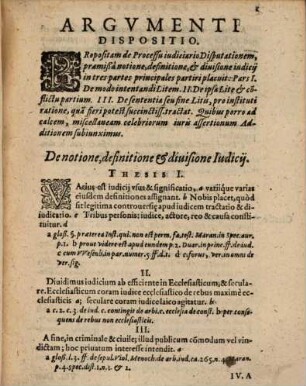 ARGVMENTI
DISPOSITIO.
PRopositam de Processu iudiciario Disputationem,
præmissâ notione, definitione, & diuisione iudicij
in tres partes principales partiri placuit: Pars I.
De modo intentandi Litem. II. De ipsa Lite & cō-
flictu partium. III. De sententia seu fine Litis, pro instituti
ratione, quâ fieri potest succinctiss. tractat. Quibus porro ad
calcem, miscellaneam celebriorum iuris assertionum Ad-
ditionem subiunximus.
De notione, definitione & diuisione Iudicij.
THESIS I.
VArius est iudicij vsus & significatio, a variique varias
eiusdem definitiones assignant. b Nobis placet, quòd
sit legitima controuersię apud iudicem tractatio & di-
iudicatio. c Tribus personis; iudice, actore, reo & causa consti-
tuitur. d
a gloss. §. præterea Inst. qui. non est perm. fa. test. Maran. in
p. 1. b prout videre est apud eundem p. 1. Duar. in prine. ff. de iud.
c
II.
Diuidimus iudicium ab efficiente in Ecclesiasticum; & secula-
re. Ecclesiasticum coram iudice ecclesiastico de rebus maximè ec-
clesiasticis a; seculare coram iudice laico agitatur. b
a c. 2. c. 3. de iud. c. contingit de arb. tr. ecclesia de const. b per con-
sequens de rebus non ecclesiasticis.
III.
A fine, in criminale & ciuile; illud publicam cōmodum vel vin-
dictam; hoc priuatum interesse intendit. a
a gloss. l. 3. ff. de sepul. viol. Menoch. de arb. iud. ca. 265. n. 4. Maran.
p. 4. spec. dist. 1. n. 1. & 2.
IV. A